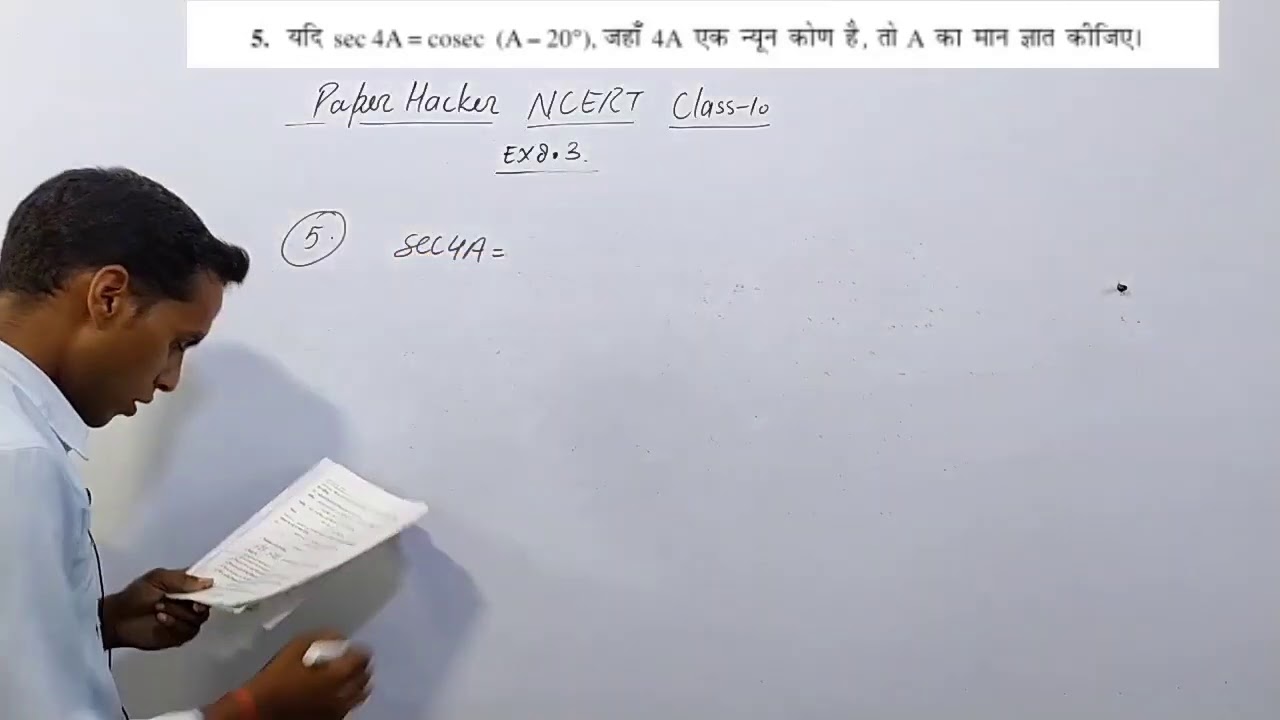 5. यदि sec 4A = cosec (A – 20°), जहाँ 4A एक न्यून कोण है, तो A का मान ज्ञात कीजिए।
Paper Hacker NCERT Class-10
EX 8.3.
5. sec4A=